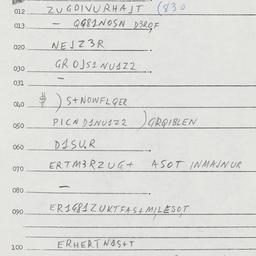 012 ZUGOIVURHAJT (830
013 - QG81NOSN D3RQF
020 NEJZ3R
030 GROJS1NU1ZZ
031 -
040 ) S+NOWFLGER
050 PICAD1NU1ZZ ) GRQIBLEN
060 D1SUR
070 ERTM3RZUG+ ASOT INMAJNUR
080 -
090 ER1G81ZUKTFAS+MILESOT
100 ERHERTNDS+T